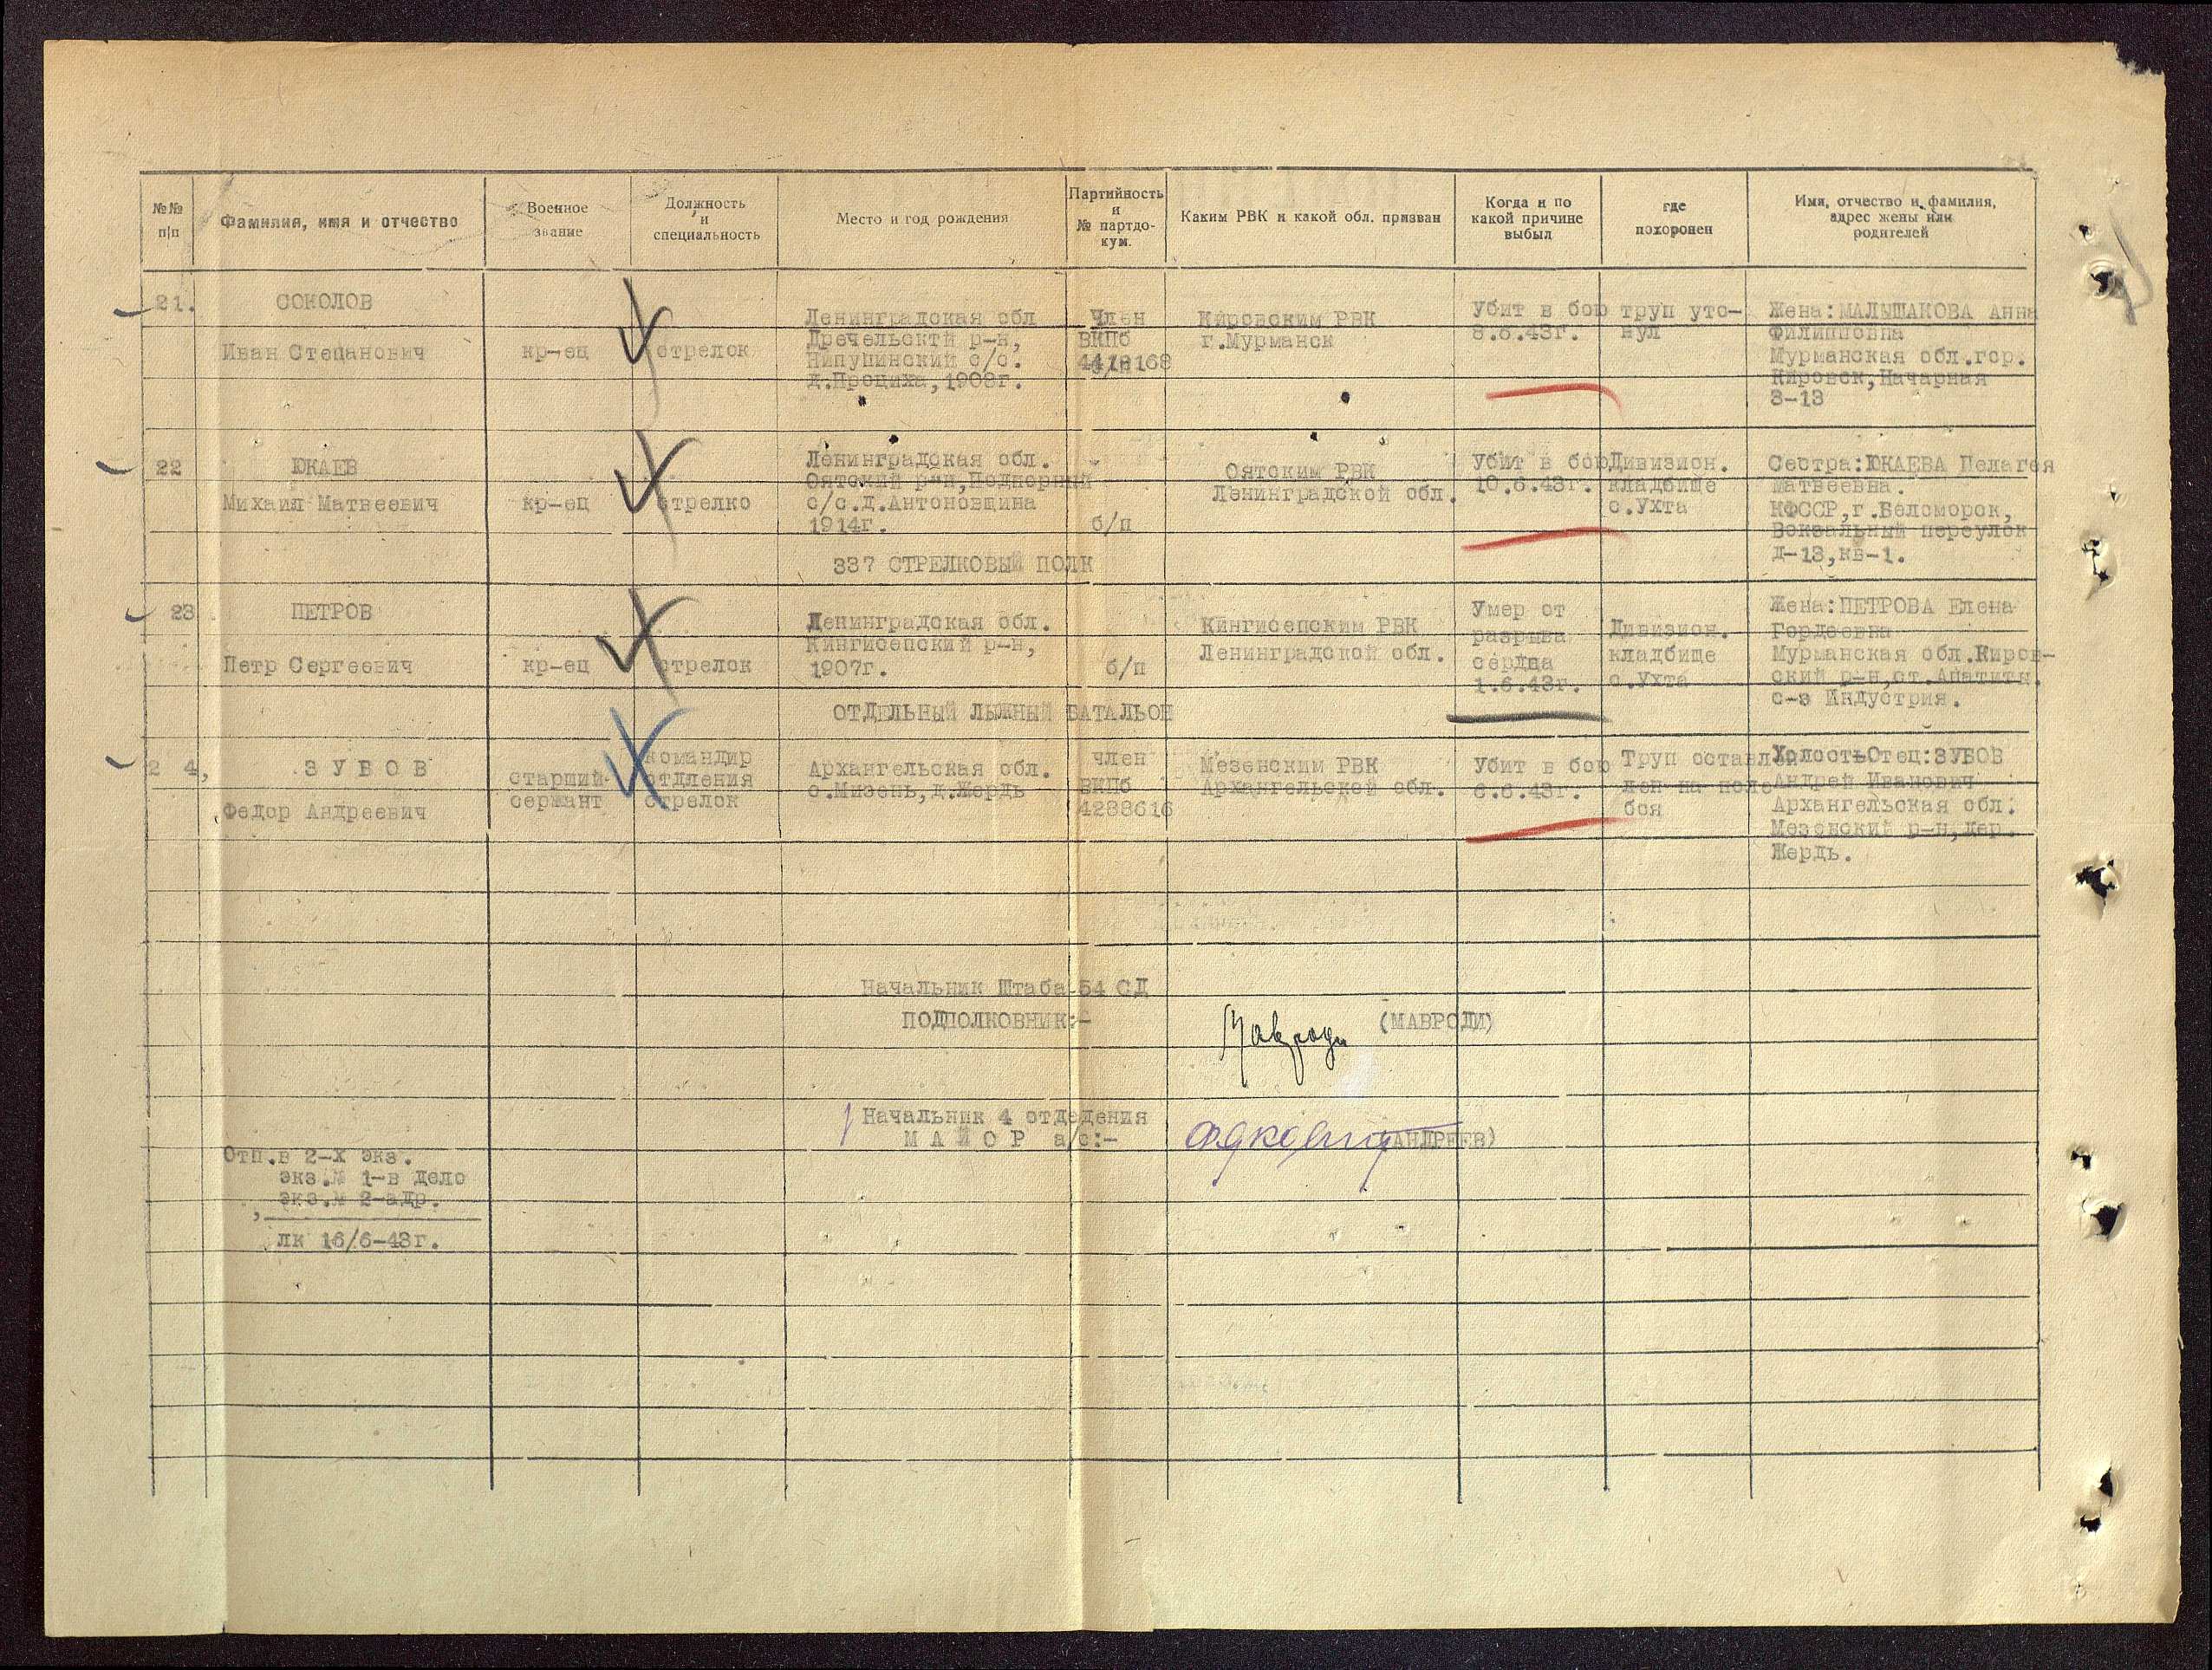 №№ п|п
Фамилия, имя и отчество
Военное звание
Должность и специальность
Место и год рождения
Партийность и № партдо-кум.
Каким РВК и какой обл. призван
Когда и по какой причине выбыл
где похоронен
Имя, отчество и фамилия, адрес жены или родителей
21.
СОКОЛОВ
Иван Степанович
кр-ец
стрелок
Ленинградская обл
Дречельскти р-н,
с/с.
1908г.
Член
ВКПб
Кировским РВК
г.Мурманск
Убит в бою
8.6.43г.
труп уто-
нул
Жена:МАЛЫШАКОВА Анна
Филипповна
Мурманская обл.гор.
Кировск,Начарная
3-13
22
ЮКАЕВ
Михаил Матвеевич
кр-ец
стрелко
Ленинградская обл.
Оятский р-н,Подпорный
с/с.д.Антоновщина
1914г.
б/п
Оятским РВК
Ленинградской обл.
Убит в бою
10.6.43г.
Дивизион.
кладбище
с.Ухта
Сестра:ЮКАЕВА Пелагея
Матвеевна.
КФССР,г.Беломорск,
Вокзальный переулок
д-13,кв-1.
337 СТРЕЛКОВЫЙ ПОЛК
23.
ПЕТРОВ
Петр Сергеевич
кр-ец
стрелок
Ленинградская обл.
Кингисепский р-н,
1907г.
б/п
Кингисепским РВК
Ленинградской обл.
Умер от
разрыва
сердца
1.6.43г.
Дивизион.
кладбище
с.Ухта
Жена:ПЕТРОВА Елена
Гордеевна
Мурманская обл.Киров-
ский р-н,ст.Апатиты.
с-з Индустрия.
ОТДЕЛЬНЫЙ ЛЫЖНЫЙ БАТАЛЬОН
2 4,
З У Б О В
Федор Андреевич
старший
сержант
командир
отдления
стрелок
Архангельская обл.
с.Мизень,д.Жердь
член
ВКПб
4288616
Мезенским РВК
Архангельской обл.
Убит в бою
6.6.43г.
Труп оставл
лен на поле
боя
ХолостьОтец:ЗУБОВ
Андрей Иванович
Архангельская обл.
Мезенский р-н,дер.
Жердь.
Начальник Штаба 54 СД
ПОДПОЛКОВНИК:-
Мавроди
(МАВРОДИ)
Начальник 4 отделения
М А Й О Р а/с:-
(АНДРЕЕВ)
Отп.в 2-х экз.
экз.№ 1-в дело
экз.№ 2-адр.
лк 16/6-43г.